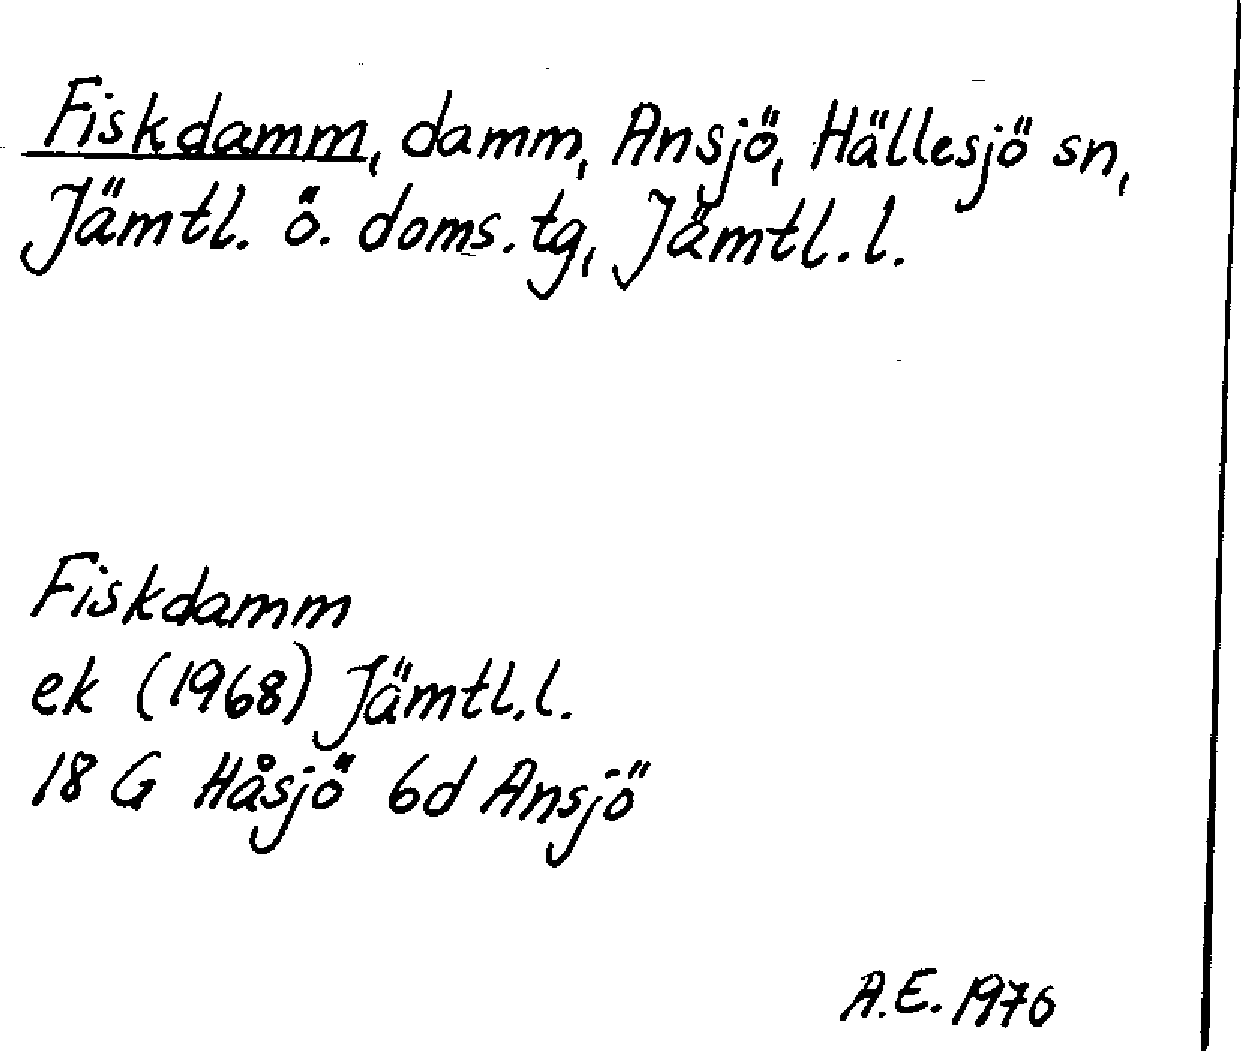 Fiskdamm, damm, Ansjö, Hällesjö sn,
Jämtl. ö. doms.tg, Jämtl.l.
Fiskdamm
ek (1968) Jämtl.l.
18 G Håsjö 6d Ansjö
A.E. 1976